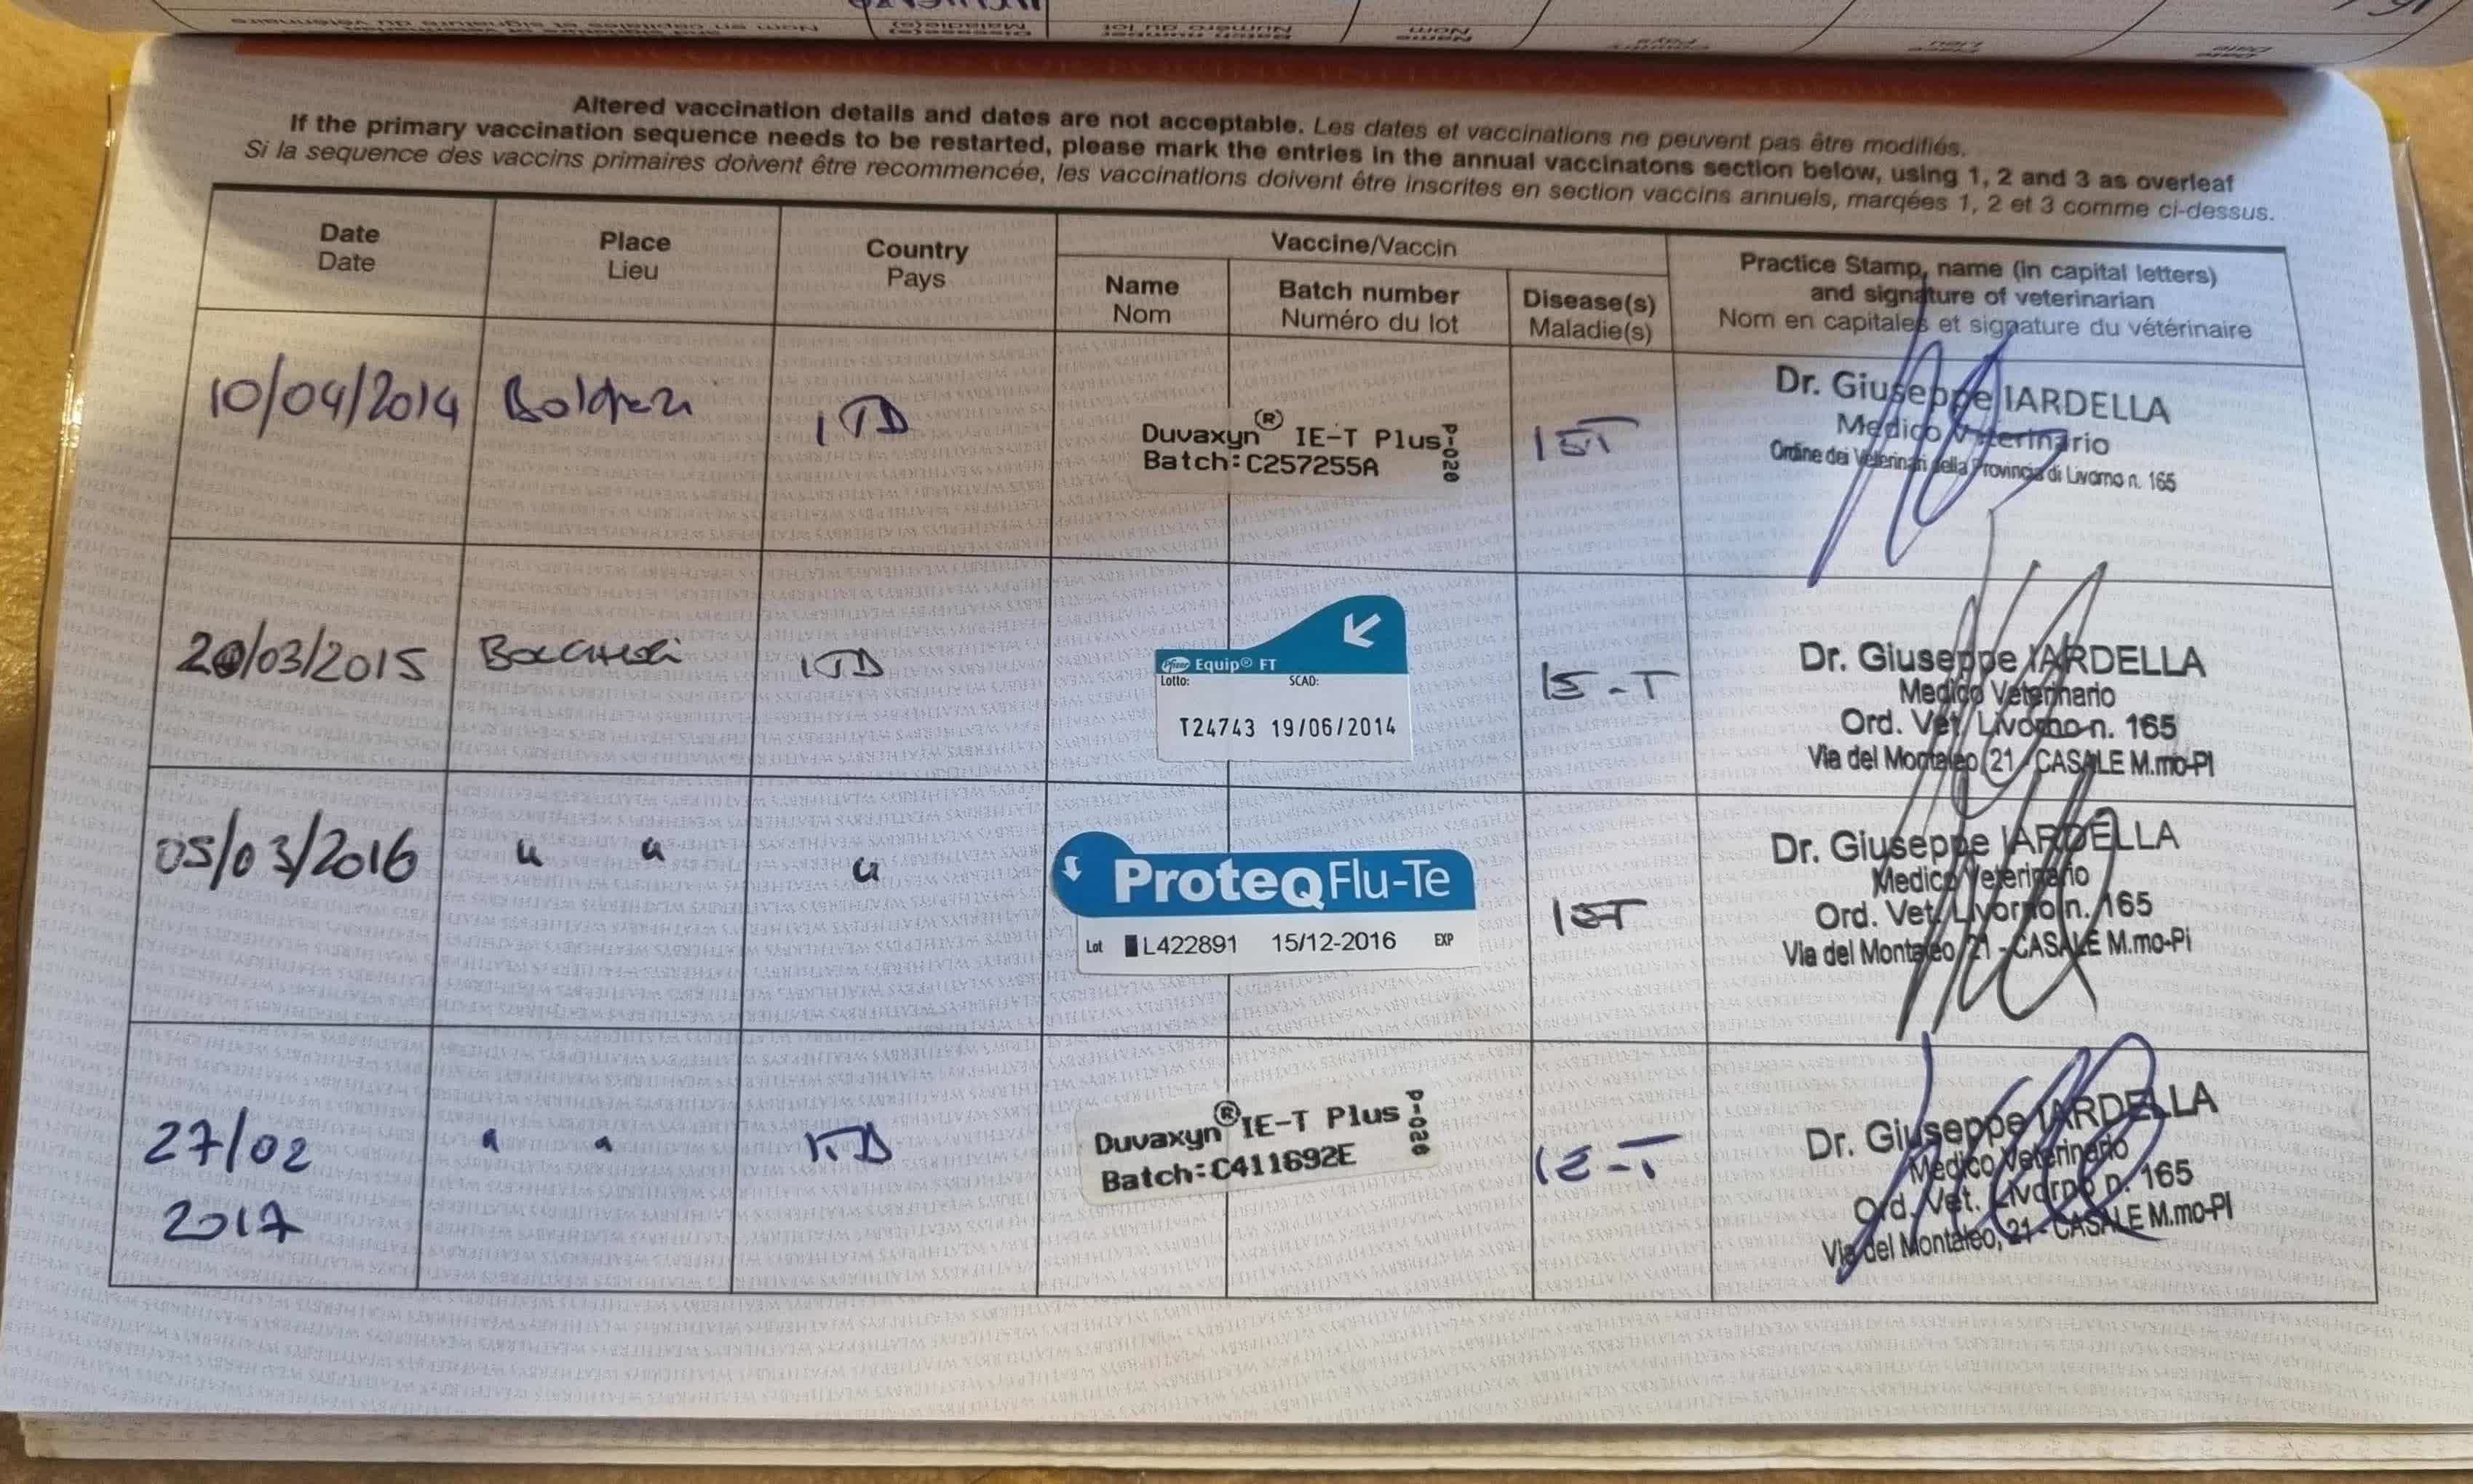 Altered vaccination details and dates are not acceptable. Les dates et vaccinations ne peuvent pas être modifiés.
If the primary vaccination sequence needs to be restarted, please mark the entries in the annual vaccinatons section below, using 1, 2 and 3 as overleaf
Si la sequence des vaccins primaires doivent être recommencée, les vaccinations doivent être inscrites en section vaccins annuels, marqées 1, 2 et 3 comme ci-dessus.
Date
Date
Place
Lieu
Country
Pays
Vaccine/Vaccin
Name
Nom
Batch number
Numéro du lot
Disease(s)
Maladie(s)
Practice Stamp, name (in capital letters)
and signature of veterinarian
Nom en capitales et signature du vétérinaire
10/04/2014
Duvaxyn® IE-T Plus
Batch:C257255A
P-020
IET
Dr. Giuseppe IARDELLA
Medico Veterinario
Ordine dei Veterinari della Provincia di Livorno n. 165
/03/2015
Pfizer Equip® FT
Lotto: SCAD:
T24743 19/06/2014
IE-T
Dr. Giuseppe IARDELLA
Medico Veterinario
Ord. Vet. Livorno n. 165
Via del Montaleo, 21 - CASALE M.mo-PI
05/03/2016 " " "
ProteqFlu-Te
Lot L422891 15/12-2016 EXP
IET
Dr. Giuseppe IARDELLA
Medico Veterinario
Ord. Vet. Livorno n. 165
Via del Montaleo, 21 - CASALE M.mo-Pi
27/02
2017
" "
Duvaxyn® IE-T Plus
Batch:C411692E
P-026
IE-T
Dr. Giuseppe IARDELLA
Medico Veterinario
Ord. Vet. Livorno n. 165
Via del Montaleo, 21 - CASALE M.mo-PI